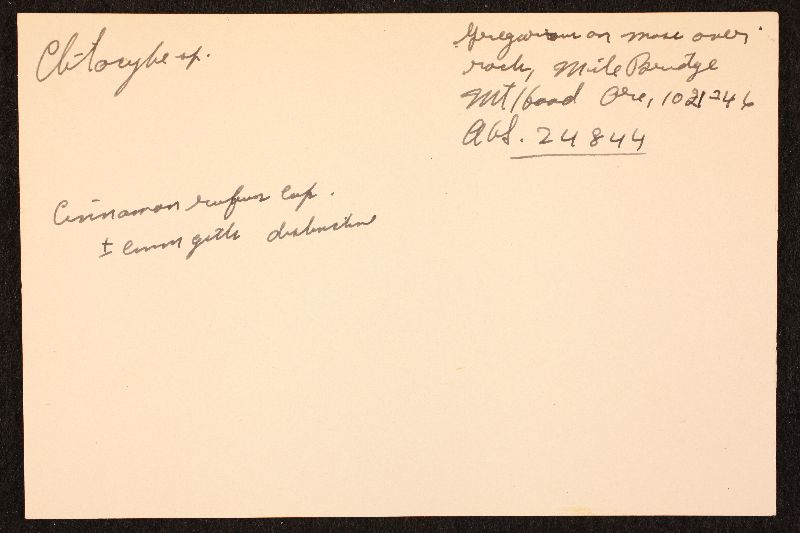 Clitocybe sp.
Gregarious on moss over
rock, Mile Bridge
Mt Hood Ore, 10
AHS. 24844
Cinnamon rufous cap.
± cinnn gills distinctive